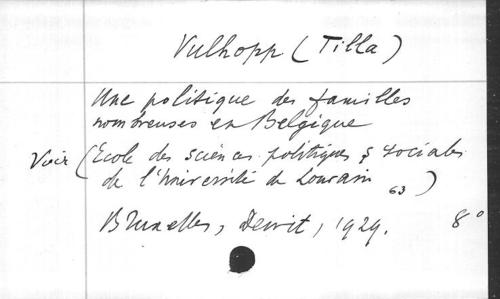 Vulhopp (Tilla)
Une politique des familles
nombreuses en Belgique
Voir (Ecole des sciences politiques & sociales
de l'Université de Louvain 63)
Bruxelles, Dewit, 1929. 8°